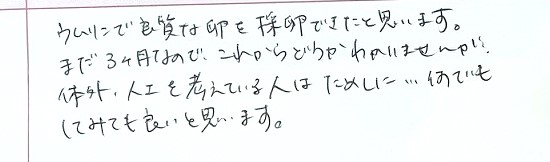 ウムリンで良質な卵を採卵できたと思います。
まだ3ヶ月なので、これからどうかわかりませんが、
体外、人工を考えている人はためしに…何でも
してみても良いと思います。